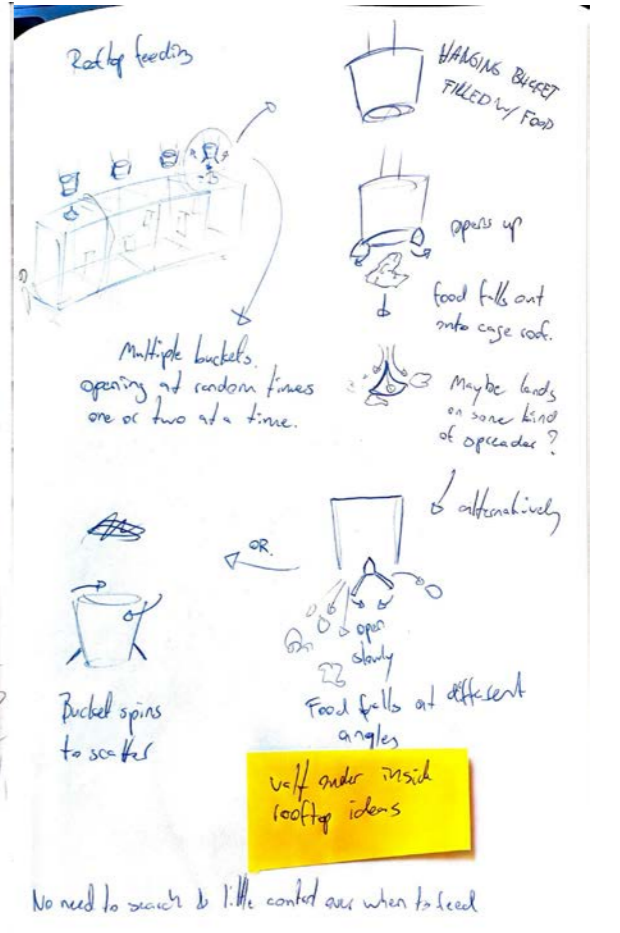 Rooftop feeding
HANGING BUCKET
FILLED w/ FOOD
opens up
food falls out
onto cage roof.
Multiple buckets.
opening at random times
one or two at a time.
Maybe lands
on some kind
of spreader?
alternatively
OR.
open
slowly
Food falls at different
angles
Bucket spins
to scatter
inside
rooftop ideas
No need to search & little control over when to feed